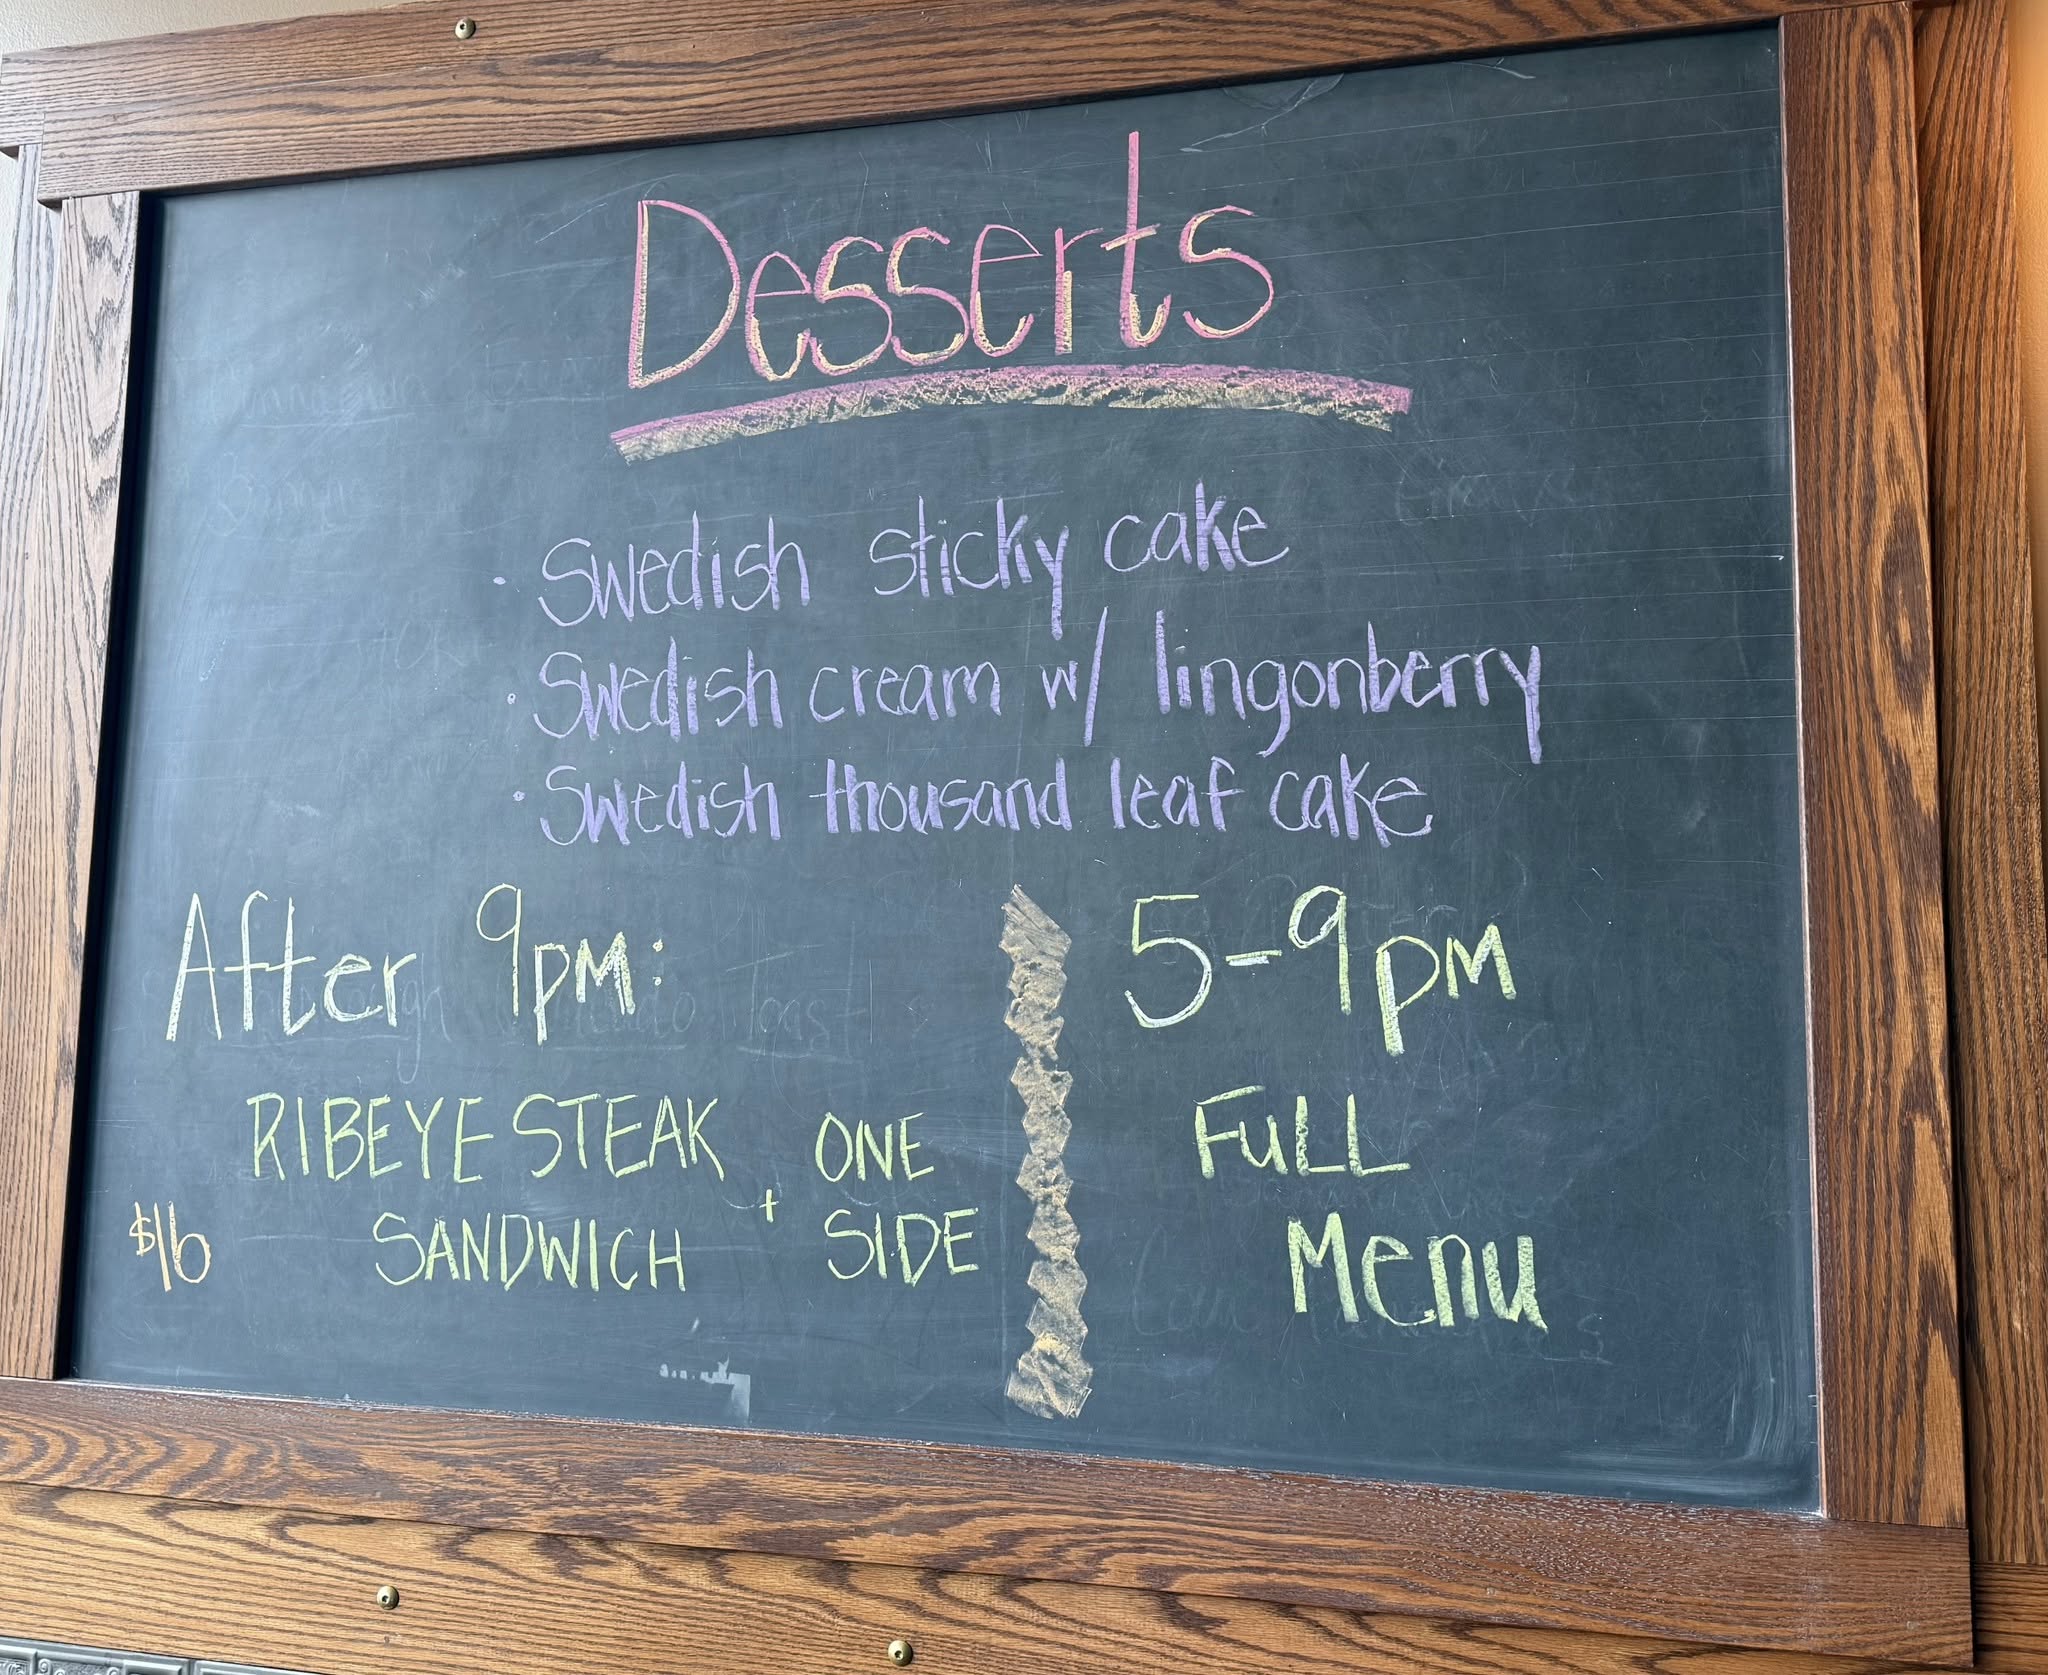 Desserts
· Swedish sticky cake
· Swedish cream w/ lingonberry
· Swedish thousand leaf cake
After 9pm:
RIBEYE STEAK
SANDWICH
+
ONE
SIDE
$16
5-9pm
FuLL
Menu